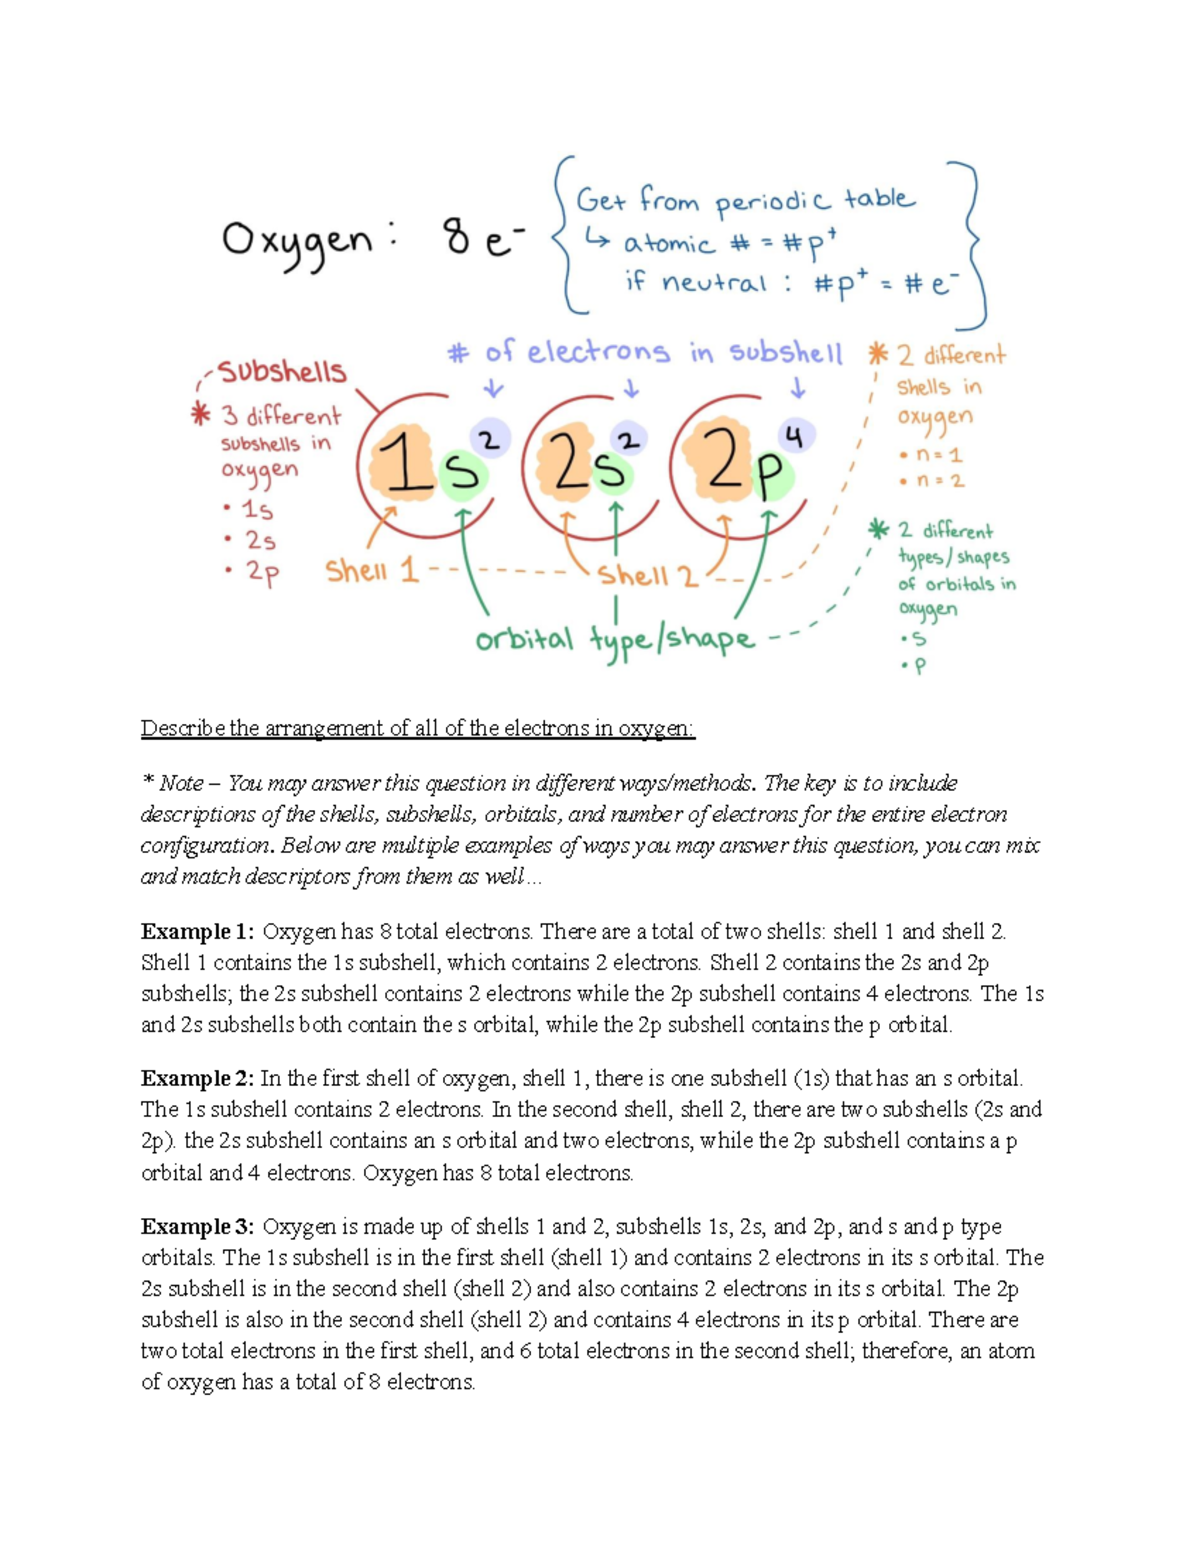 Oxygen: 8 e⁻
Get from periodic table
↳ atomic # = #p⁺
if neutral : #p⁺ = # e⁻
# of electrons in subshell
Subshells
* 3 different
subshells in
oxygen
• 1s
• 2s
• 2p
1s² 2s² 2p⁴
Shell 1
Shell 2
orbital type/shape
* 2 different
shells in
oxygen
• n = 1
• n = 2
* 2 different
types/shapes
of orbitals in
oxygen
• s
• p
Describe the arrangement of all of the electrons in oxygen:
* Note – You may answer this question in different ways/methods. The key is to include
descriptions of the shells, subshells, orbitals, and number of electrons for the entire electron
configuration. Below are multiple examples of ways you may answer this question, you can mix
and match descriptors from them as well…
Example 1: Oxygen has 8 total electrons. There are a total of two shells: shell 1 and shell 2.
Shell 1 contains the 1s subshell, which contains 2 electrons. Shell 2 contains the 2s and 2p
subshells; the 2s subshell contains 2 electrons while the 2p subshell contains 4 electrons. The 1s
and 2s subshells both contain the s orbital, while the 2p subshell contains the p orbital.
Example 2: In the first shell of oxygen, shell 1, there is one subshell (1s) that has an s orbital.
The 1s subshell contains 2 electrons. In the second shell, shell 2, there are two subshells (2s and
2p). the 2s subshell contains an s orbital and two electrons, while the 2p subshell contains a p
orbital and 4 electrons. Oxygen has 8 total electrons.
Example 3: Oxygen is made up of shells 1 and 2, subshells 1s, 2s, and 2p, and s and p type
orbitals. The 1s subshell is in the first shell (shell 1) and contains 2 electrons in its s orbital. The
2s subshell is in the second shell (shell 2) and also contains 2 electrons in its s orbital. The 2p
subshell is also in the second shell (shell 2) and contains 4 electrons in its p orbital. There are
two total electrons in the first shell, and 6 total electrons in the second shell; therefore, an atom
of oxygen has a total of 8 electrons.